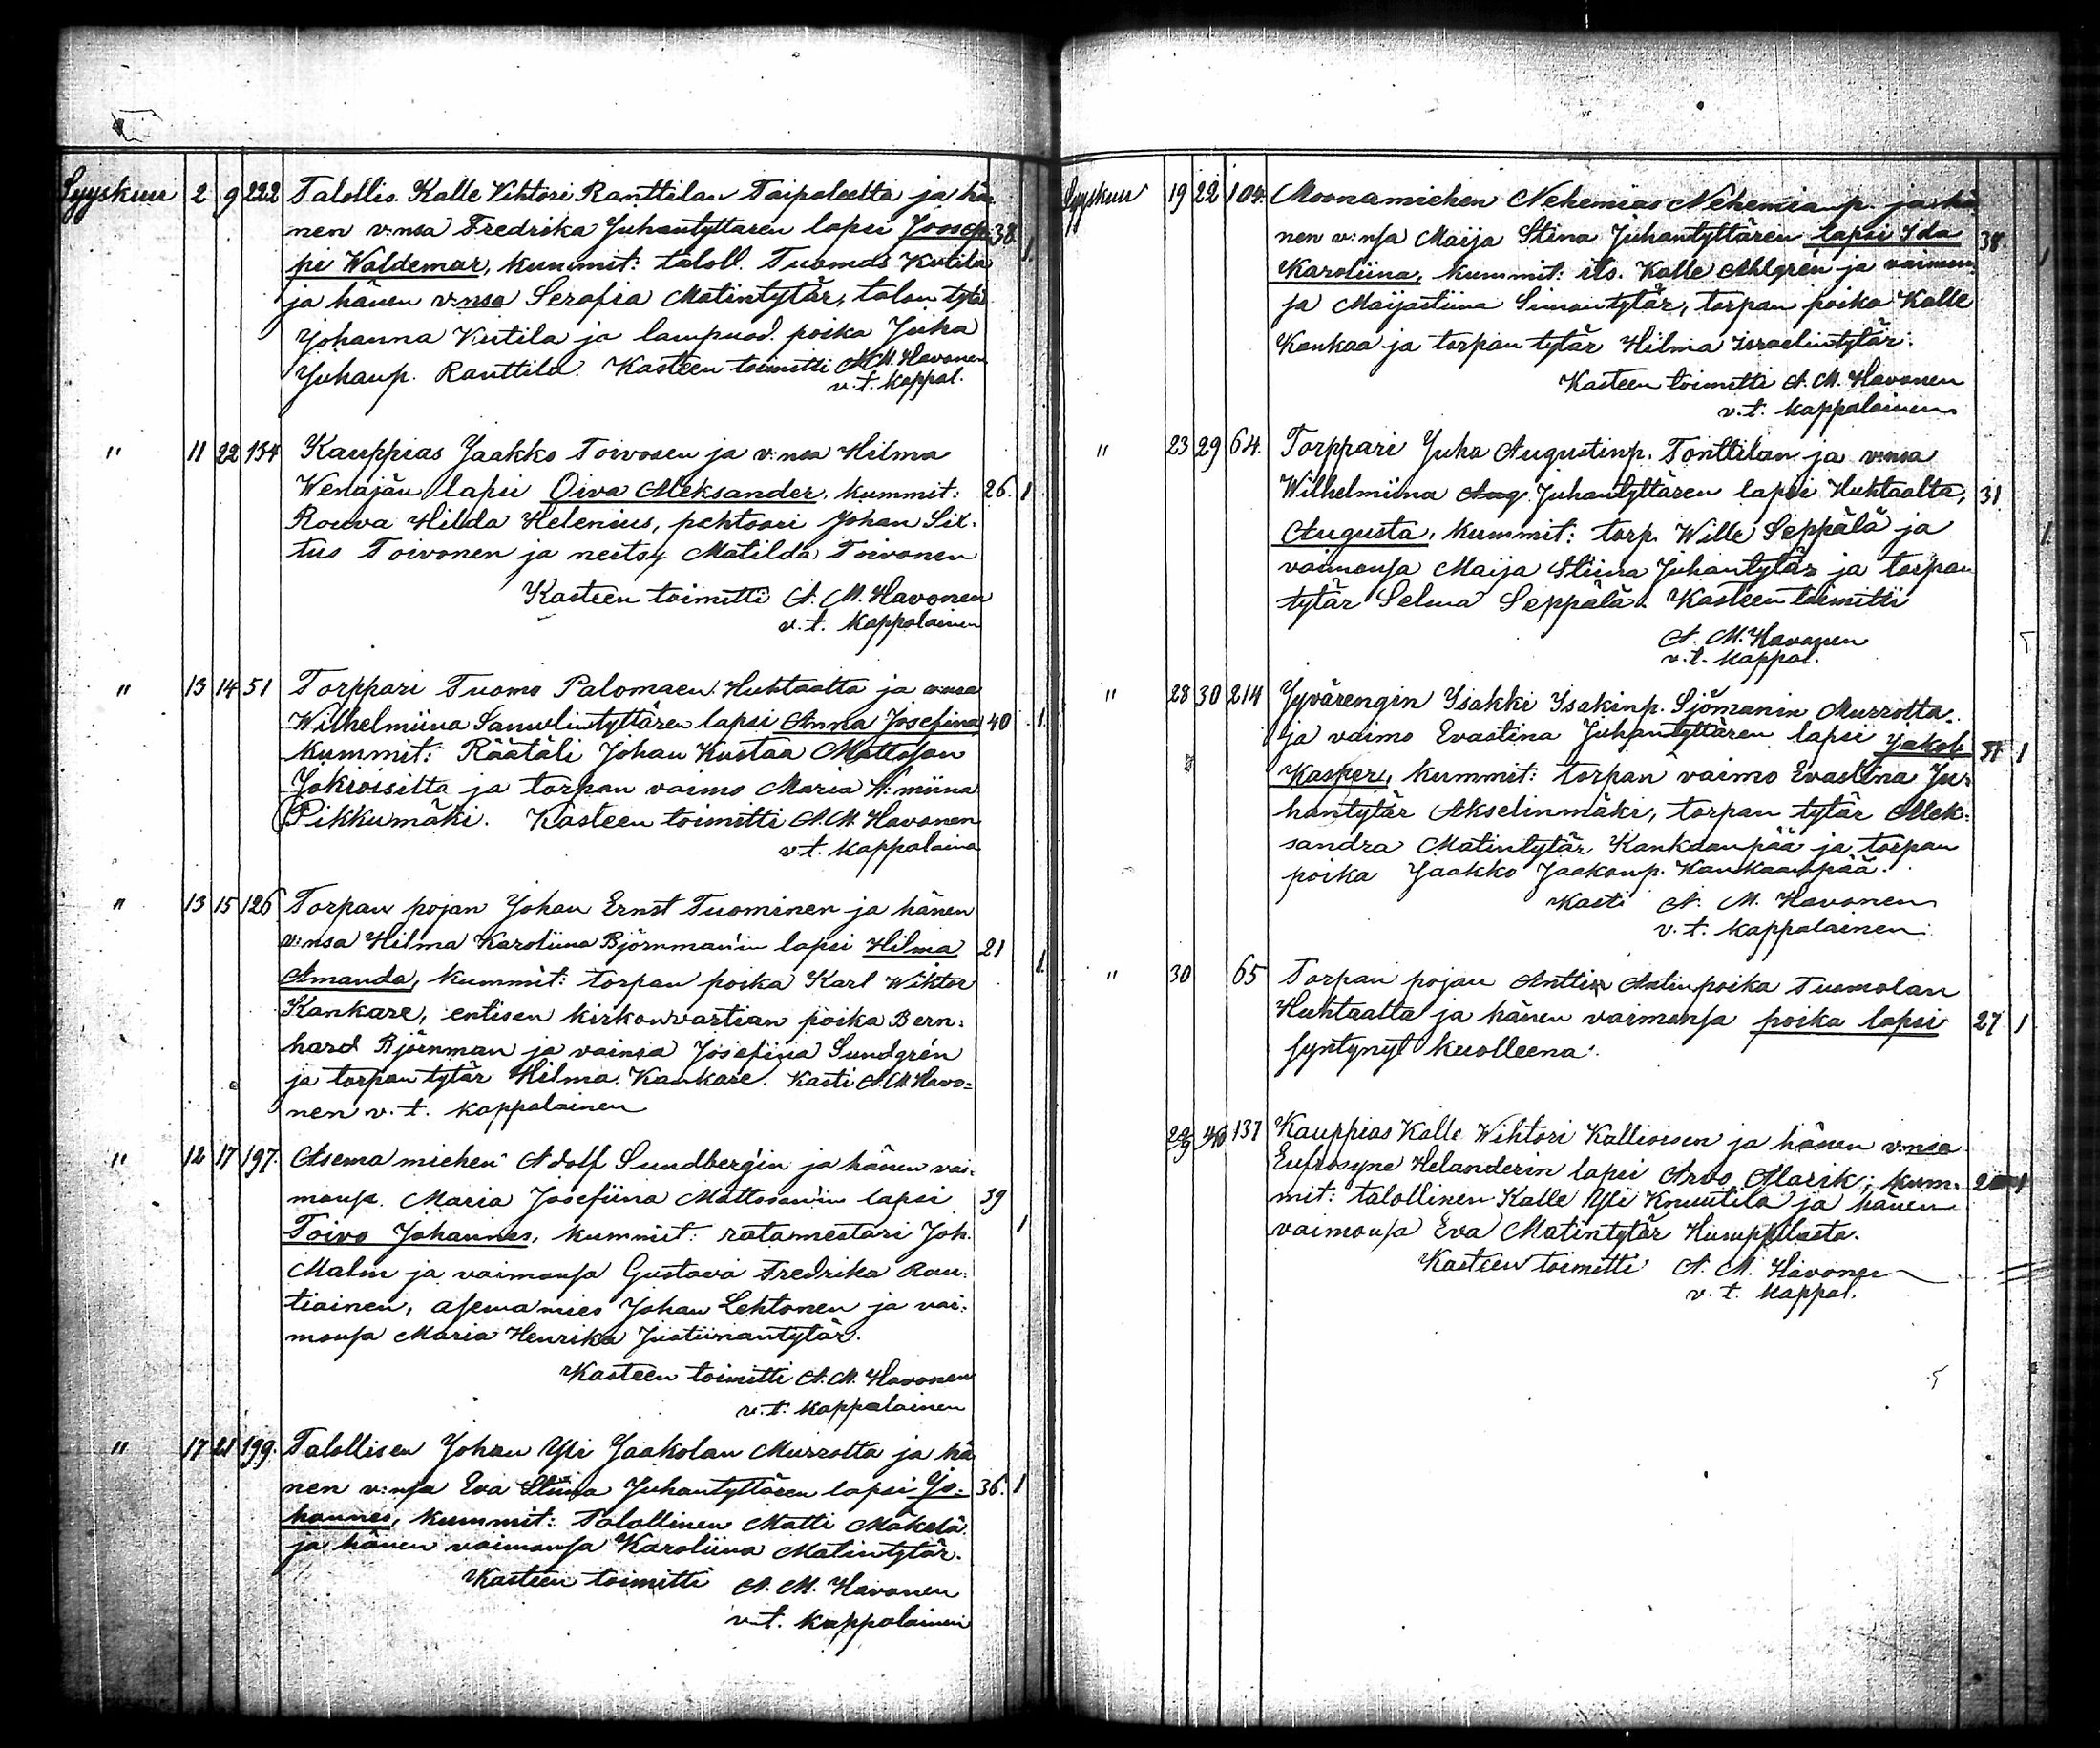 Syyskuu 2 9 222 Talollis. Kalle Vihtori Ranttilan Taipaleelta ja hä-
nen v:nsa Fredrika Juhantyttären lapsi Joosep- 38. 1
pi Waldemar, kummit: taloll. Tuomas Kutila
ja hänen v:nsa Serafia Matintytär, talon tytär
Johanna Kutila ja lampuod. poika Juha
Juhanp. Ranttila. Kasteen toimitti A. M. Havonen
v. t. kappal.
" 11 22 134 Kauppias Jaakko Toivosen ja v:nsa Hilma
Wenäjän lapsi Oiva Aleksander, kummit: 26. 1
Rouva Hilda Helenius, pehtoori Johan Six-
tus Toivonen ja neitsy Matilda Toivonen
Kasteen toimitti A. M. Havonen
v. t. kappalainen
" 13 14 51 Torppari Tuomo Palomaen Huhtaalta ja v:nsa
Wilhelmiina Samulintyttären lapsi Anna Josefina 40 1.
kummit: Räätäli Johan Kustaa Mattsson
Jokioisilta ja torpan vaimo Maria W:miina
Pikkumäki. Kasteen toimitti A. M. Havonen
v. t. kappalaina
" 13 15 126 Torpan pojan Johan Ernst Tuominen ja hänen
v:nsa Hilma Karoliina Björnman'in lapsi Hilma 21
Amanda, kummit: torpan poika Karl Wiktor 1.
Kankare, entisen kirkonvartian poika Bern-
hard Björnman ja vainsa Josefina Sundgrén
ja torpan tytär Hilma Kankare. Kasti A. M. Havo-
nen v. t. kappalainen
" 12 17 197. Asemamiehen Adolf Sundberg'in ja hänen vai-
monsa Maria Josefiina Mattsson'in lapsi 39
Toivo Johannes, kummit: ratamestari Joh. 1
Malm ja vaimonsa Gustava Fredrika Rau-
tiainen, asemamies Johan Lehtonen ja vai-
monsa Maria Henrika Justiinantytär.
Kasteen toimitti A. M. Havonen
v. t. kappalainen
" 17 21 199. Talollisen Johan Yli Jaakolan Murrolta ja hä
nen v:nsa Eva Stiina Juhantyttären lapsi Jo- 36. 1
hannes, kummit: Talollinen Matti Mäkelä
ja hänen vaimonsa Karoliina Matintytär.
Kasteen toimitti A. M. Havonen
v. t. kappalainen
Syyskuu 19 22 104. Moonamiehen Nehemias Nehemianp. ja hä
nen v:nsa Maija Stina Juhantyttären lapsi Ida 38.
Karoliina, kummit: its. Kalle Ahlgrén ja vaimon- 1
sa Maijastiina Simontytär, torpan poika Kalle
Kankaa ja torpan tytär Hilma Israelintytär.
Kasteen toimitti A. M. Havonen
v. t. kappalainen
" 23 29 64. Torppari Juha Augustinp. Tonttilan ja v:nsa
Wilhelmiina Aug. Juhantyttären lapsi Huhtaalta, 31
Augusta, kummit: torp. Wille Seppälä ja 1.
vaimonsa Maija Stiina Juhantytär ja torpan
tytär Selma Seppälä. Kasteen toimitti
A. M. Havonen
v. t. kappal.
" 28 30 214 Jyvärengin Isakki Isakinp. Sjömanin Murrolta
ja vaimo Evastina Juhantyttären lapsi Jakob 1
Kasper, kummit: torpan vaimo Evastina Ju-
hantytär Akselinmäki, torpan tytär Alek-
sandra Matintytär Kankaanpää ja torpan
poika Jaakko Jaakonp. Kankaanpää.
Kasti A. M. Havonen
v. t. kappalainen
" 30 65 Torpan pojan Anttin Antinpoika Tuomolan
Huhtaalta ja hänen vaimonsa poika lapsi 27. 1
syntynyt kuolleena.
137 Kauppias Kalle Wihtori Kallioisen ja hänen v:nsa
Eufrosyne Helanderin lapsi Arvo Alarik; kum-
mit: talollinen Kalle Yli Knuutila ja hänen
vaimonsa Eva Matintytär Humppilasta.
Kasteen toimitti A. M. Havonen
v. t. kappal.